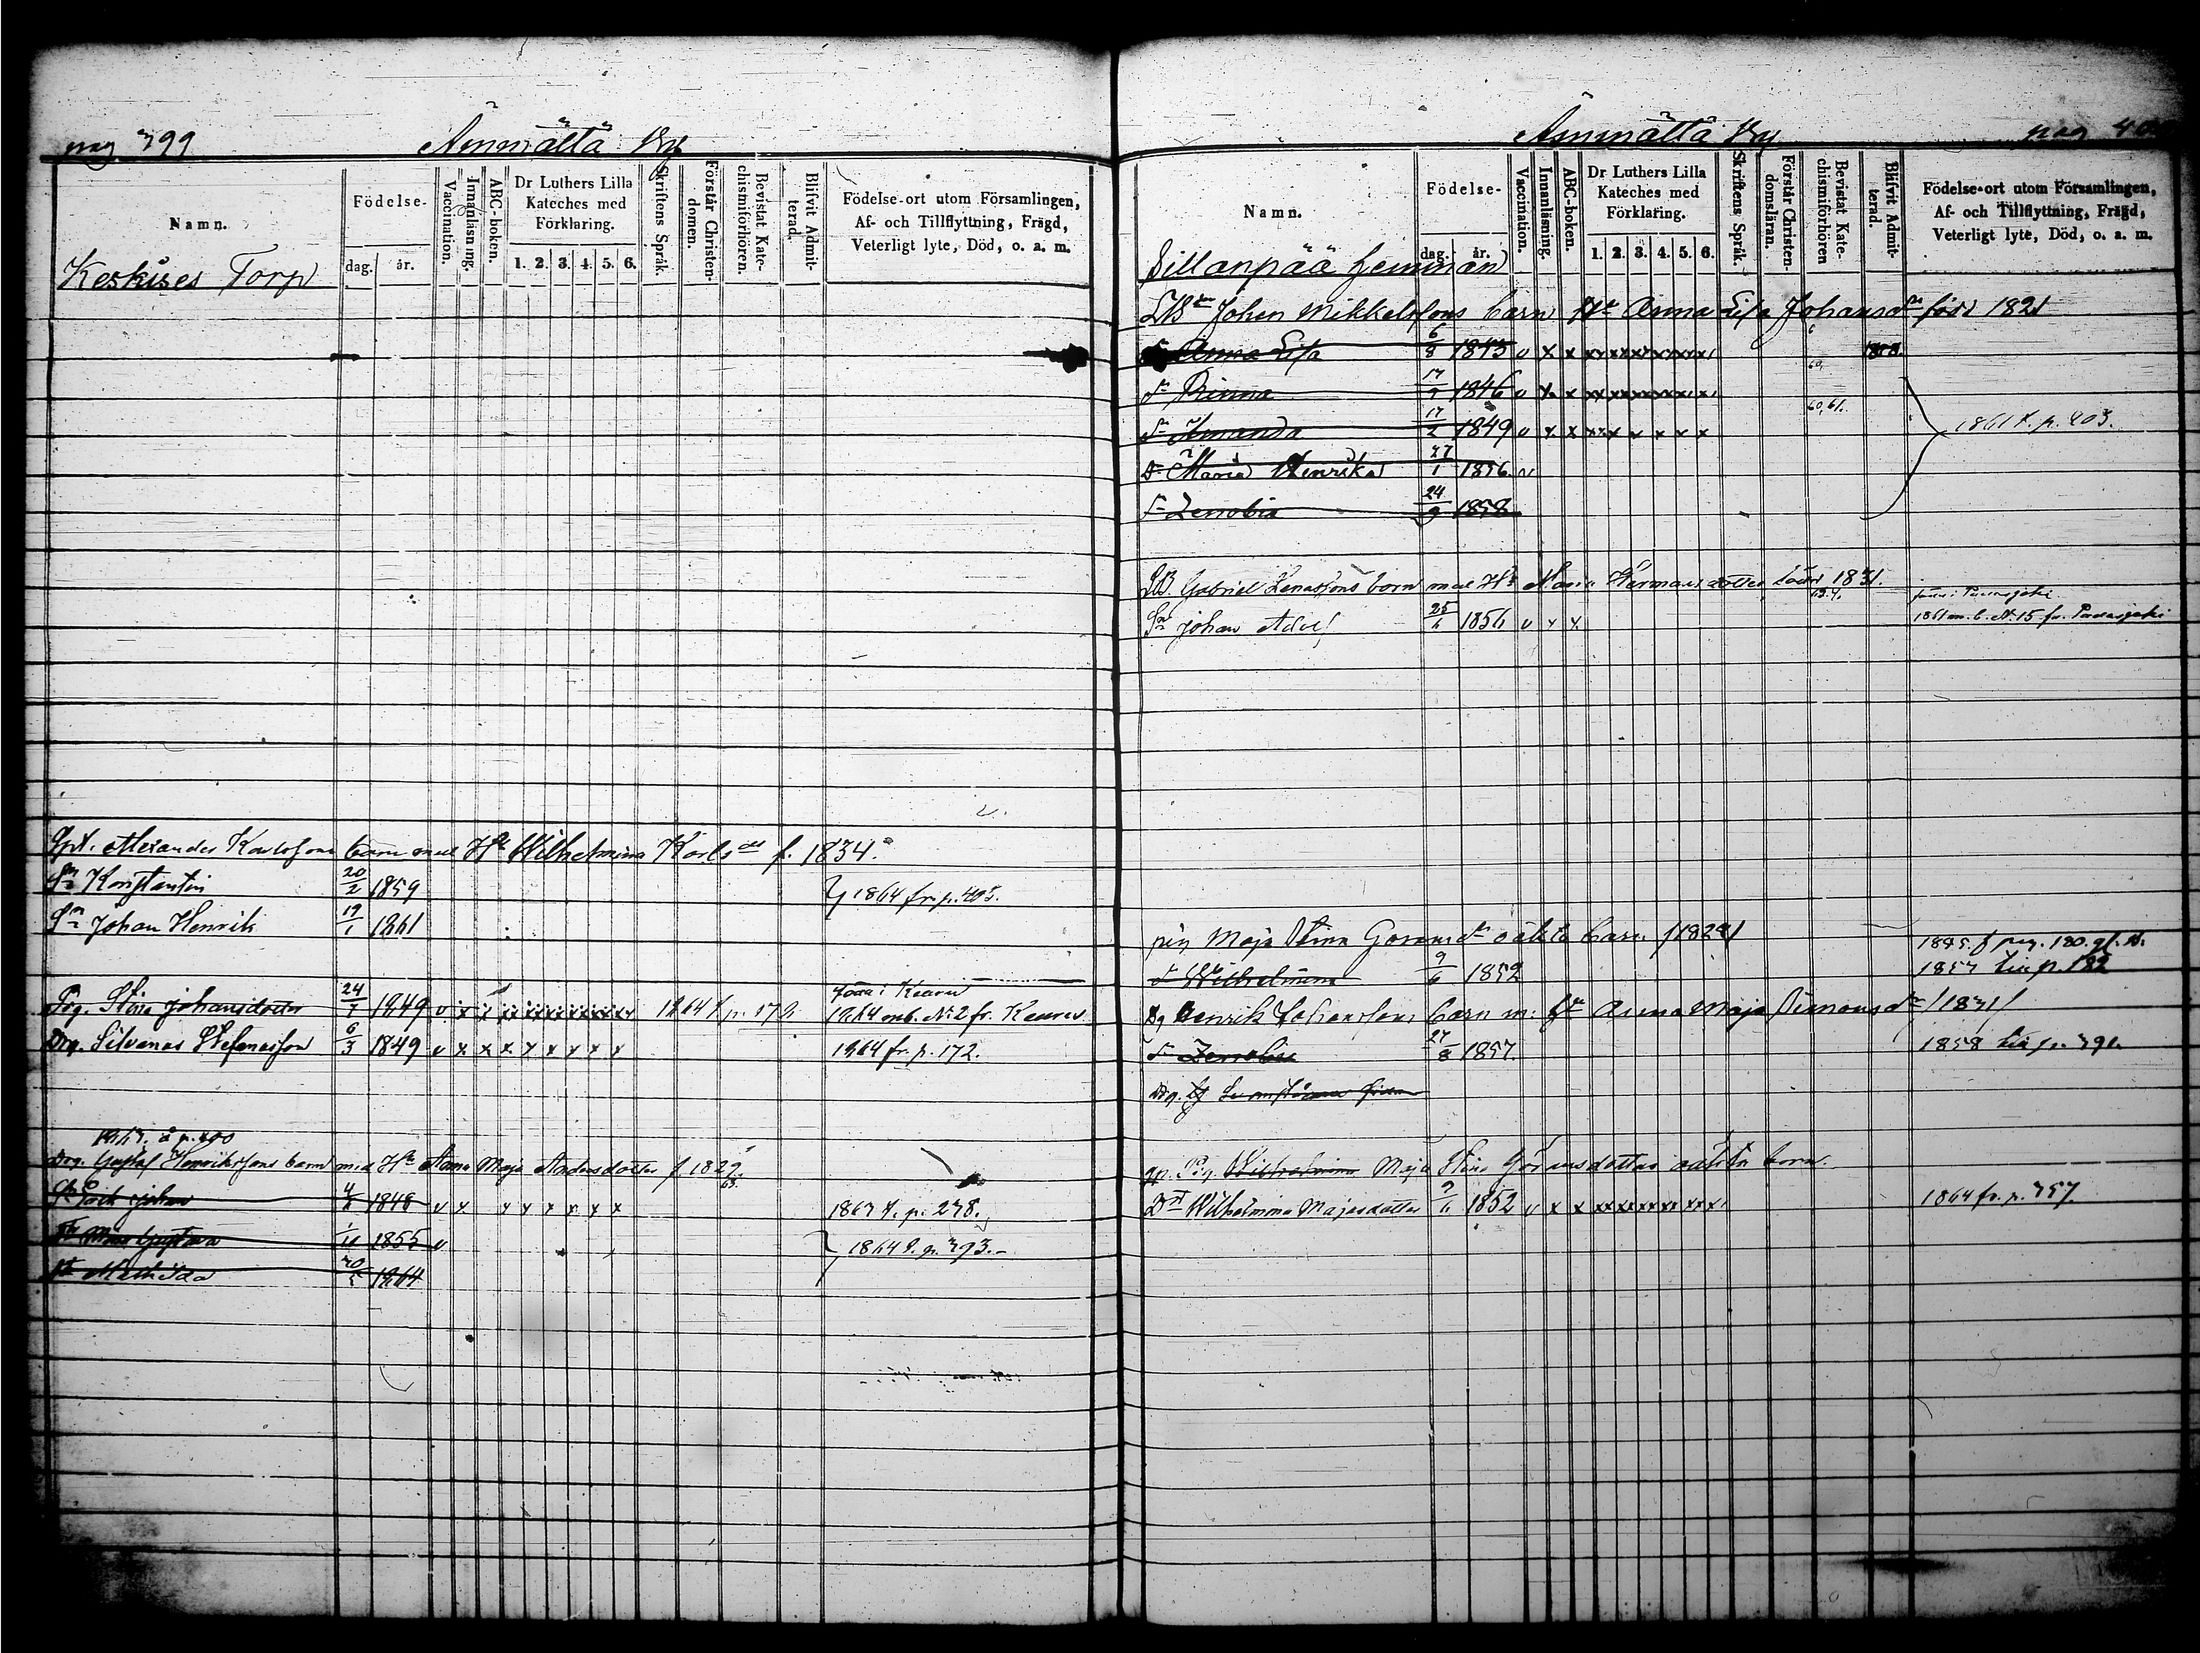 pag 399 Ämmätlä By
Namn. Födelse- dag. år. Vaccination. Innanläsning. ABC-boken. Dr Luthers Lilla Kateches med Förklaring. 1. 2. 3. 4. 5. 6. Skriftens Språk. Förstår Christendomen. Bevistat Katechismiförhören. Blifvit Admitterad. Födelse-ort utom Församlingen, Af- och Tillflyttning, Frägd, Veterligt lyte, Död, o. a. m.
Keskises Torp
Alexander Karlssons barn med Hu Wilhelmina Karlsdr f. 1834.
Sn Konstantin 20/2 1859 1864 fr. p. 403.
Sn Johan Henrik 19/1 1861
född i Keuru
Pig. Stina Johansdotter 24/7 1849 v x x xx xx xx xx xx xx 1864 t. p. 179. 1864 mb. No 2 fr. Keuru
Drg. Silvanus Stefansson 6/3 1849 v x x x x x x x x 1864 fr. p. 172.
1863. å p. 400
Drg. Gustaf Henrikssons barn med Hu Anna Maja Andersdotter f. 1829.
Johan 1848 v x x x x x x x 1867 t. p. 278.
Gustava 1855 v 1864 t. p. 393.
Mathilda 1864
Ämmätlä By pag 400
Namn. Födelse- dag. år. Vaccination. Innanläsning. ABC-boken. Dr Luthers Lilla Kateches med Förklaring. 1. 2. 3. 4. 5. 6. Skriftens Språk. Förstår Christendomsläran. Bevistat Katechismiförhören Blifvit Admitterad. Födelse-ort utom Församlingen, Af- och Tillflyttning, Frägd, Veterligt lyte, Död, o. a. m.
Sillanpää hemman
Johan Mikkelssons barn Hu Anna Lisa Johansdr född 1821
Anna Lisa 6/8 1843 v x x xx xx xx xx xx xx 1858
60,
1846 v x x xx xx xx xx xx xx
60, 61.
Dr Amanda 17/2 1849 v x x xx x x x x x 1861 t. p. 403.
Dr Maria Henrika 27/1 1856 v
Dr Zenobia 24/9 1858
Gabriel barn med Hu Maria Hermansdotter född 1831.
63.4. född i Padasjoki
Sn Johan Adolf 25/6 1856 v x x 1861 m. b. No 15 fr. Padasjoki
pig Maja Stina Göransdr oäkta barn /1822/ 1845. f pag. 180. gl. b.
Dr Wilhelmina 9/6 1852 1857 till p. 182
Dg Henrik Johanssons barn m: Hu Anna Maja Simonsdr /1831/
Dr Zenobia 27/8 1857. 1858 till p. 391.
Drg.
Pig. Wilhelmina Maja Stina Göransdotters oäkta barn.
Dr Wilhelmina Majasdotter 9/6 1852 v x x xx xx xx xx xx xx 1864 fr. p. 357